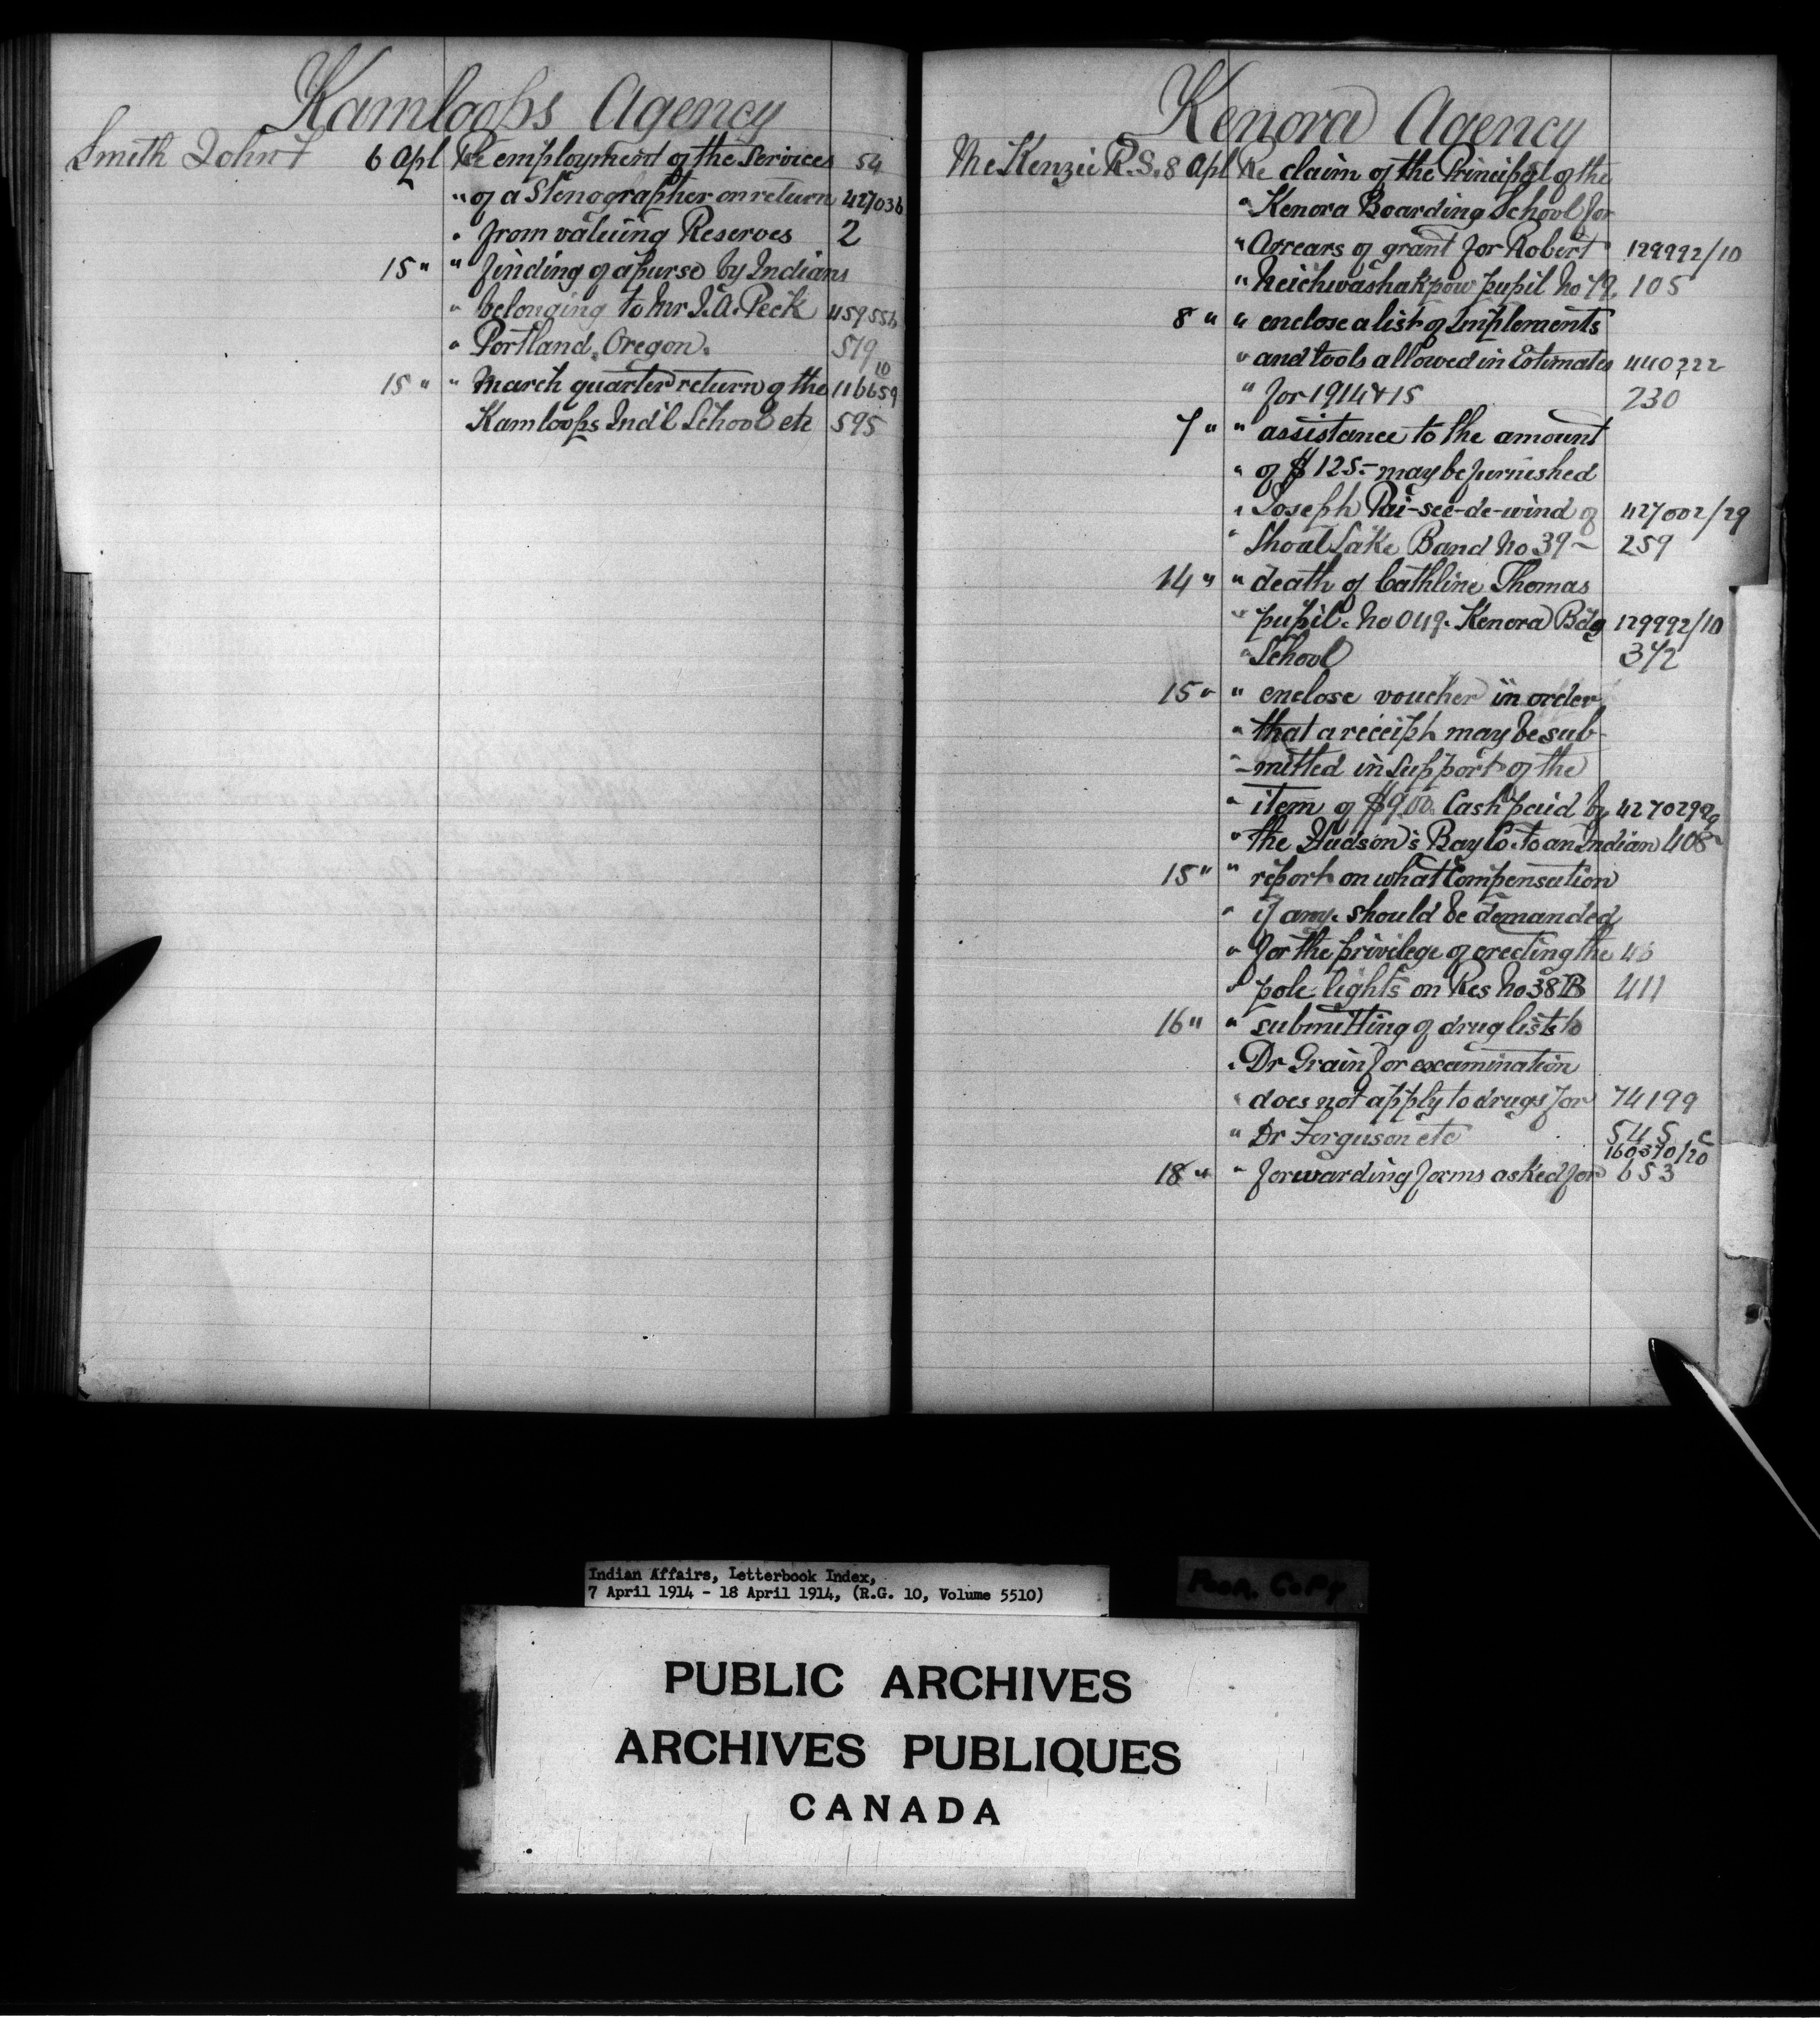 Kamloops Agency
Smith John F 6 Apl Re employment of the Services 54
" of a Stenographer on return 427036
" from valuing Reserves 2
15 " " finding of a purse by Indians
" belonging to Mr J.A. Peck 459556
" Portland, Oregon. 579
10
15 " " March quarter return of the 116659
Kamloops Ind'l School etc 595
Kenora Agency
McKenzie R.S. 8 Apl Re claim of the Principal of the
" Kenora Boarding School for
" Arrears of grant for Robert 129992/10
" pupil No 79. 105
8 " " enclose a list of Implements
" and tools allowed in Estimates 440222
" for 1914 & 15 230
7 " " assistance to the amount
" of $125.- may be furnished
" Joseph Pai-see-de-wind of 427002/29
" Shoal Lake Band No 39 - 259
14 " " death of Cathline Thomas
" pupil. No 049. Kenora Bdg 129992/10
" School 372
15 " " enclose voucher in order
" that a receipt may be sub-
" -mitted in support of the
" item of $9.00. Cash paid by
" the Hudson's Bay Co. to an Indian 408
15 " " report on what Compensation
" if any. should be demanded
" for the privilege of erecting the 46
" pole lights on Res No 38B 411
16 " " submitting of drug lists to
" Dr Grain for examination
" does not apply to drugs for 74199
" Dr Ferguson etc 545
160370/20
18 " " forwarding forms asked for 653
Indian Affairs, Letterbook Index,
7 April 1914 - 18 April 1914, (R.G. 10, Volume 5510)
Poor. Copy
PUBLIC ARCHIVES
ARCHIVES PUBLIQUES
CANADA